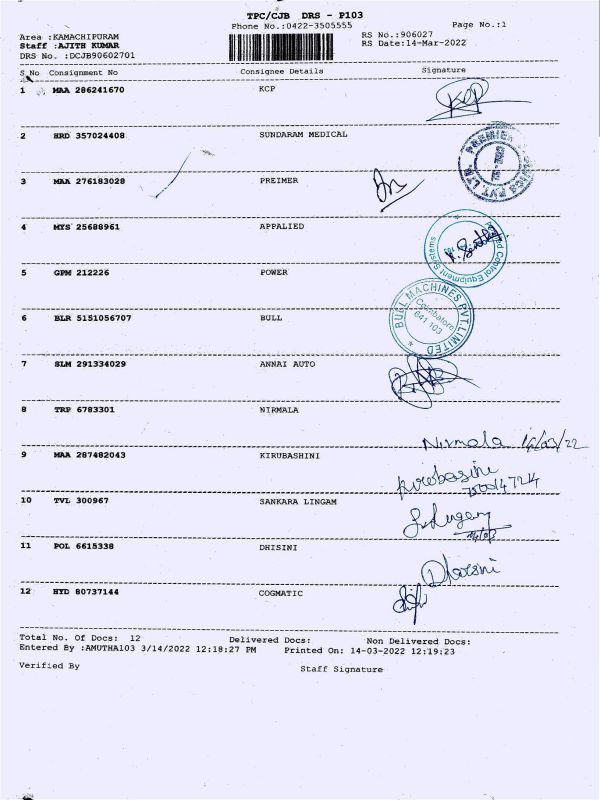 TPC/CJB DRS - P103
Phone No.:0422-3505555
Page No.:1
Area :KAMACHIPURAM
RS No.:906027
Staff :AJITH KUMAR
RS Date:14-Mar-2022
DRS No. :DCJB90602701
S No Consignment No Consignee Details Signature
1 MAA 286241670 KCP KCP
2 HRD 357024408 SUNDARAM MEDICAL
3 MAA 276183028 PREIMER
4 MYS 25688961 APPALIED
Control Equipment Systems
5 GPM 212226 POWER
6 BLR 5151056707 BULL
BULL MACHINES PVT LIMITED
Coimbatore
641 103
7 SLM 291334029 ANNAI AUTO
8 TRP 6783301 NIRMALA
Nirmala 14/03/22
9 MAA 287482043 KIRUBASHINI
10 TVL 300967 SANKARA LINGAM
11 POL 6615338 DHISINI
12 HYD 80737144 COGMATIC
Total No. Of Docs: 12 Delivered Docs: Non Delivered Docs:
Entered By :AMUTHA103 3/14/2022 12:18:27 PM Printed On: 14-03-2022 12:19:23
Verified By Staff Signature